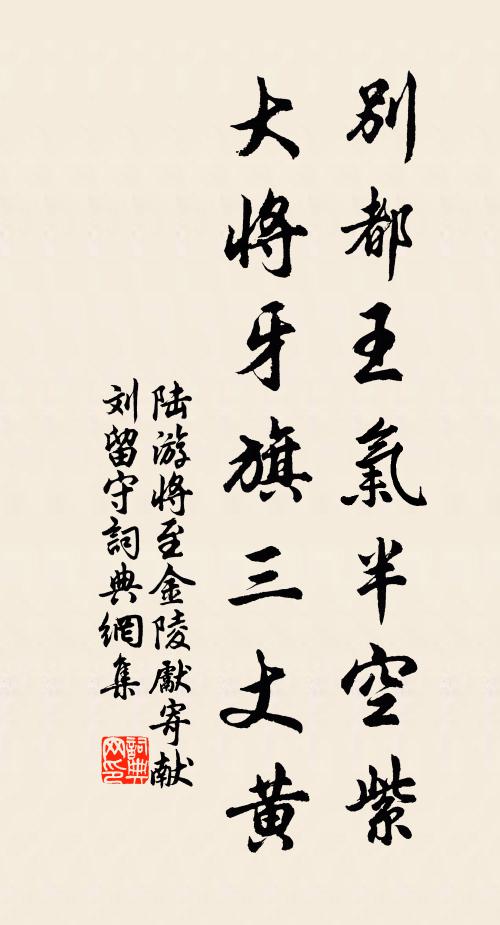 別都王氣半空紫
大將牙旗三丈黃
陆游將至金陵獻寄献
刘留守詞典網集
詞典網印